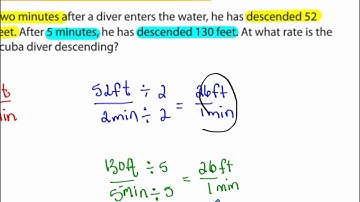 wo minutes after a diver enters the water, he has descended 52
eet. After 5 minutes, he has descended 130 feet. At what rate is the
cuba diver descending?
52ft ÷ 2 = 26ft
2min ÷ 2 1min
130ft ÷ 5 = 26ft
5min ÷ 5 1min